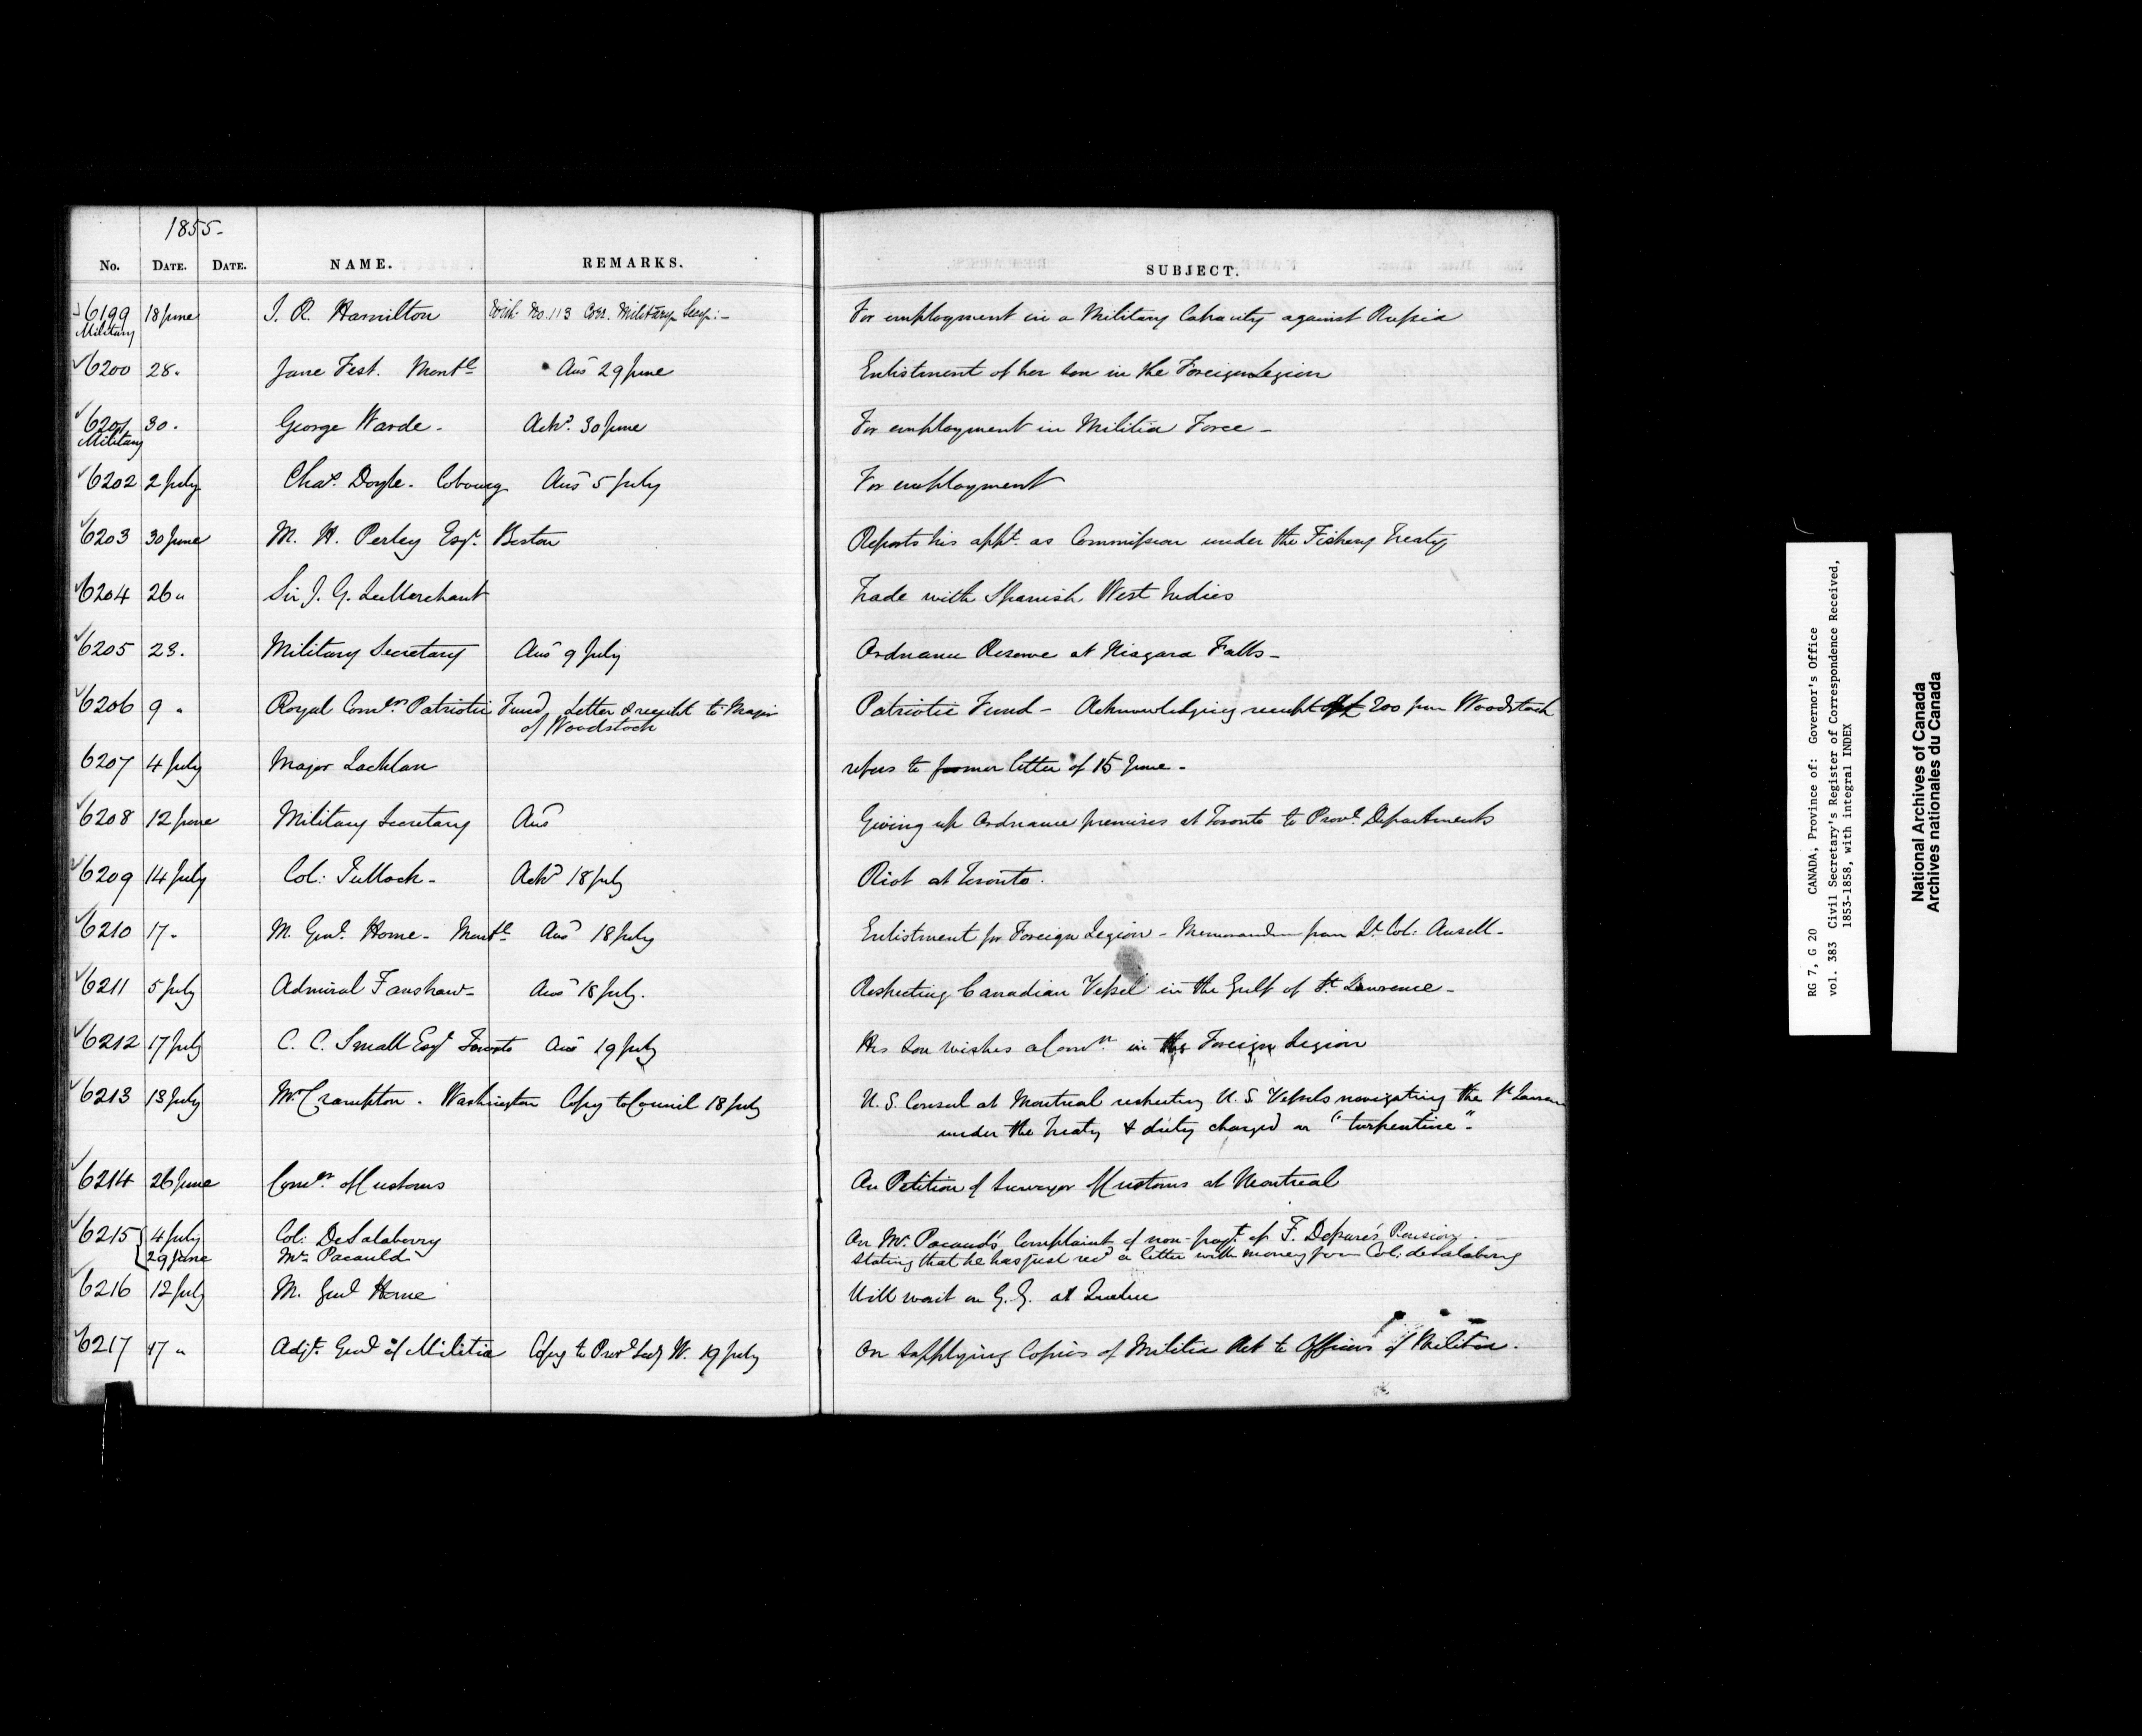 1855-
No. DATE. DATE. NAME. REMARKS. SUBJECT.
6199 18 June J. R. Hamilton With No. 113 Corr. Military Secy:- For employment in a Military Capacity against Russia
Military
6200 28. Jane Fest. Montl Ansd 29 June Enlistment of her son in the Foreign Legion
6201 30. George Warde. Ackd. 30 June For employment in Militia Force-
Military
6202 2 July Chas. Doyle. Cobourg Ansd 5 July For employment
6203 30 June M. H. Perley Esqr. Boston Reports his appt. as Commission under the Fishery Treaty
6204 26 " Sir J. G. LeMerchant Trade with Spanish West Indies
6205 23. Military Secretary Ansd 9 July Ordnance Reserve at Niagara Falls-
6206 9 " Royal Comrs. Patriotic Fund, Letter & receipt to Major Patriotic Fund - Acknowledging receipt of £200 from Woodstock
of Woodstock
6207 4 July Major Lachlan refers to former letter of 15 June-
6208 12 June Military Secretary Ansd Giving up Ordnance premises at Toronto to Provl. Departments
6209 14 July Col: Tulloch- Ackd 18 July Riot at Toronto.
6210 17. M. Genl. Home- Montl Ansd 18 July Enlistment for Foreign Legion - Memorandum from Lt Col: Ansell-
6211 5 July Admiral Fanshaw- Ansd 18 July. Respecting Canadian Vessel in the Gulf of St. Lawrence-
6212 17 July C. C. Small Esqr Toronto Ansd 19 July His Son wishes a Comn. in the Foreign Legion
6213 13 July Mr. Crampton. Washington Copy to Council 18 July U.S. Consul at Montreal respecting U.S. Vessels navigating the St Lawren
under the Treaty & duty charged on "turpentine".
6214 26 June Comr. of Customs On Petition of Surveyor of Customs at Montreal
6215 4 July Col: DeSalaberry On Mr. Pacaud's Complaint of non-payt. of F. Pension.
29 June Mr. Pacauld stating that he has just recd a letter with money from Col: deSalaberry
6216 12 July M. Genl Home Will wait on G.G. at Quebec
6217 17 " Adjt. Genl of Militia Copy to Provl Secy W. 19 July On supplying Copies of Militia Act to Officers of Militia.
RG 7, G 20 CANADA, Province of: Governor's Office
vol. 383 Civil Secretary's Register of Correspondence Received,
1853-1858, with integral INDEX
National Archives of Canada
Archives nationales du Canada